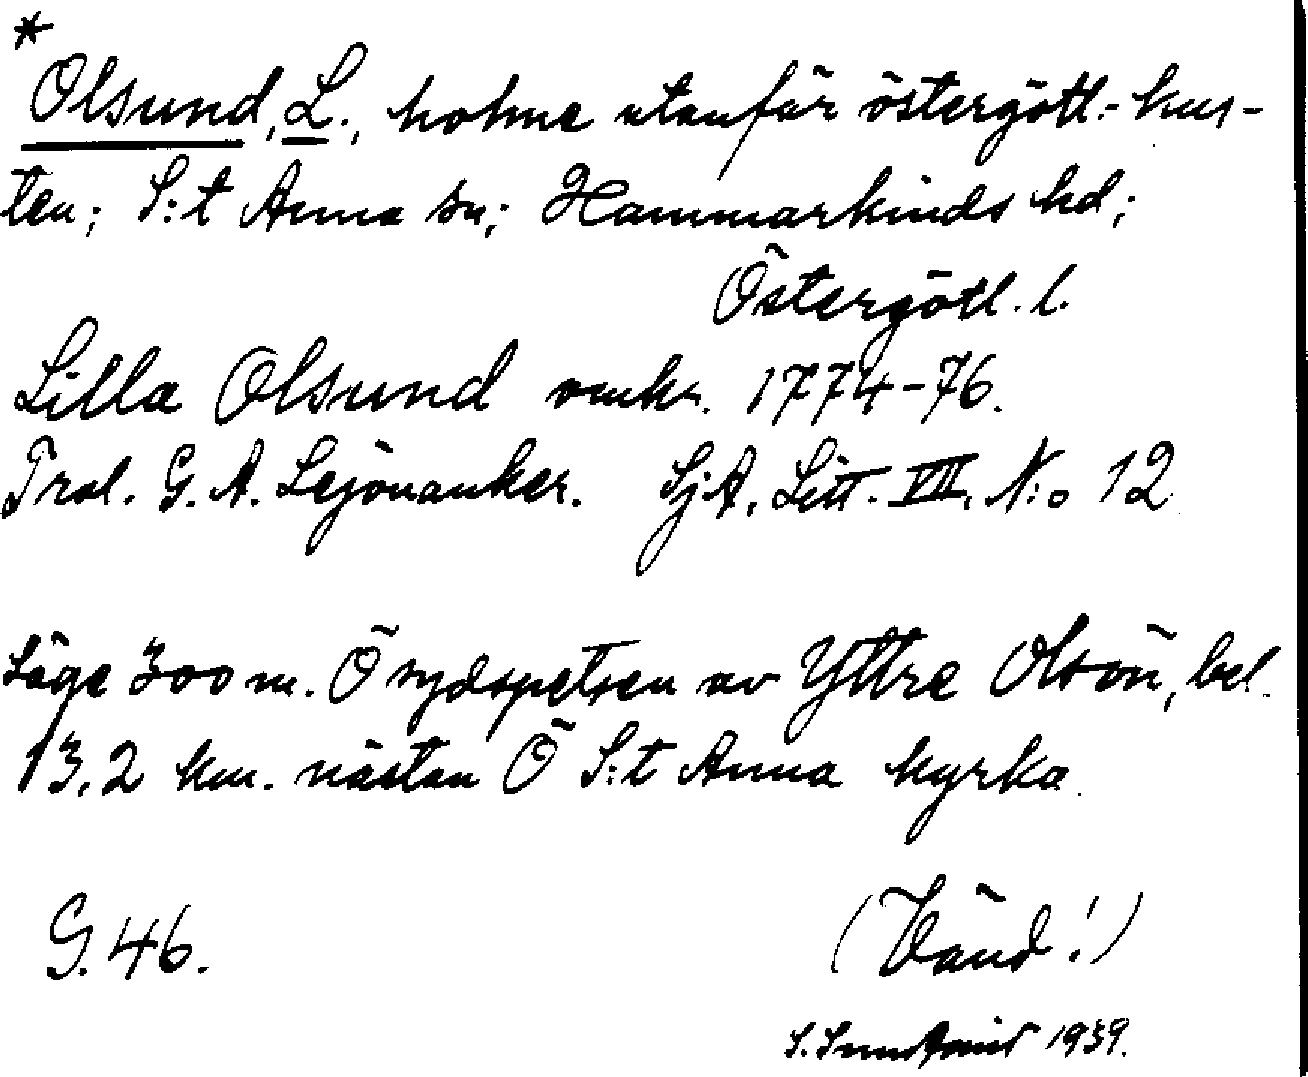 *
Olsund, L., holme utanför östergötl.-kus-
ten; S:t Anna sn; Hammarkinds hd;
Östergötl. l.
Lilla Olsund omkr. 1774-76.
G. A. Lejonanker. SjA. Litt. VII. N:o 12
Läge 300 m. Ö sydspetsen av Yttre Olsön, bel.
13,2 km. nästan Ö S:t Anna kyrka.
G. 46.
(Vänd!)
S. 1939.